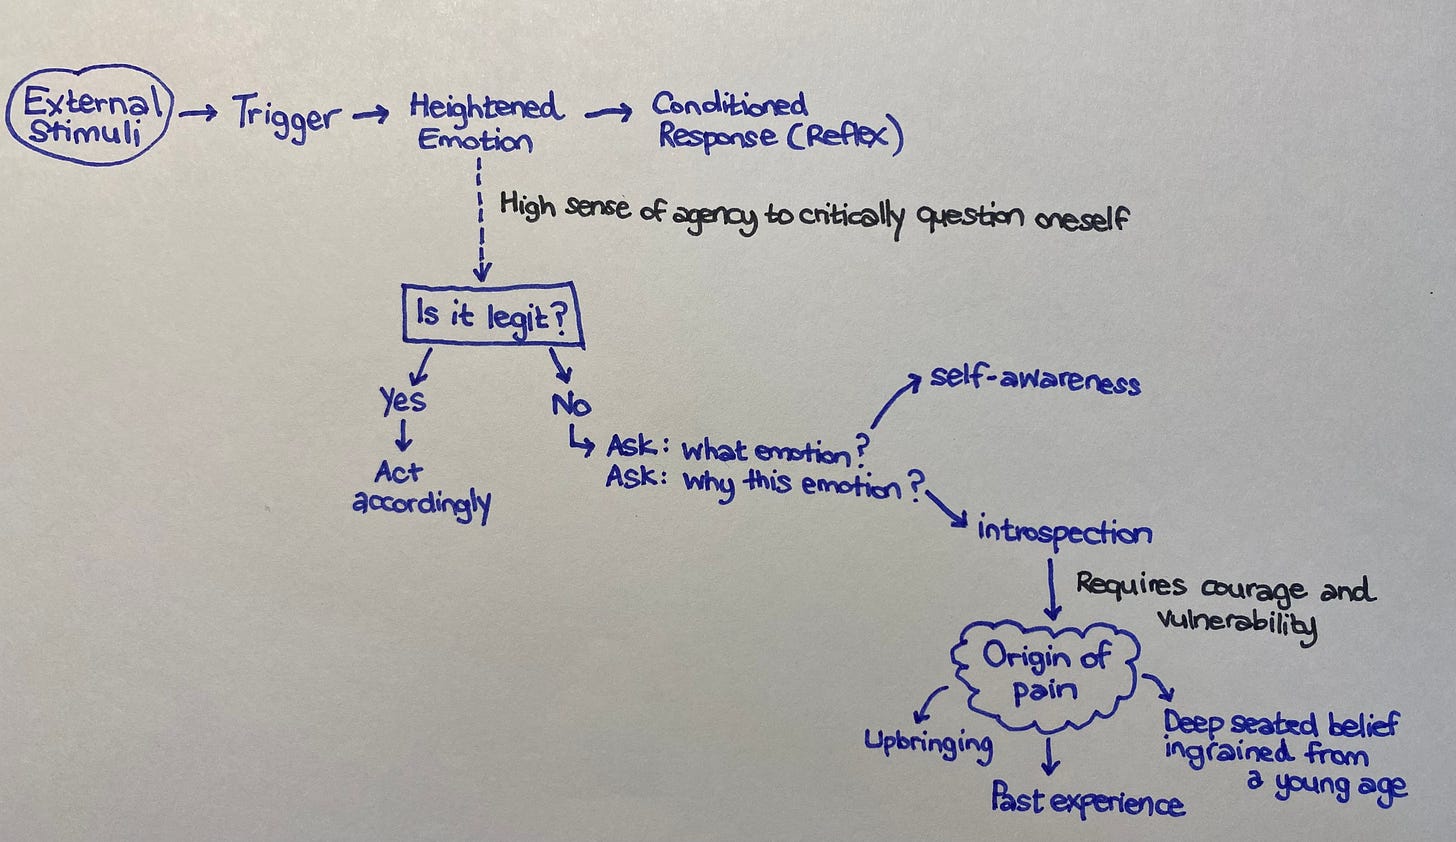 External
stimuli
Trigger
Heightened
Emotion
Conditioned
Response (Reflex)
High sense of agency to critically question oneself
Is it legit?
Yes
No
Act
accordingly
Ask: what emotion?
Ask: why this emotion?
self-awareness
introspection
Requires courage and
vulnerability
Origin of
pain
Upbringing
Past experience
Deep seated belief
ingrained from
a young age